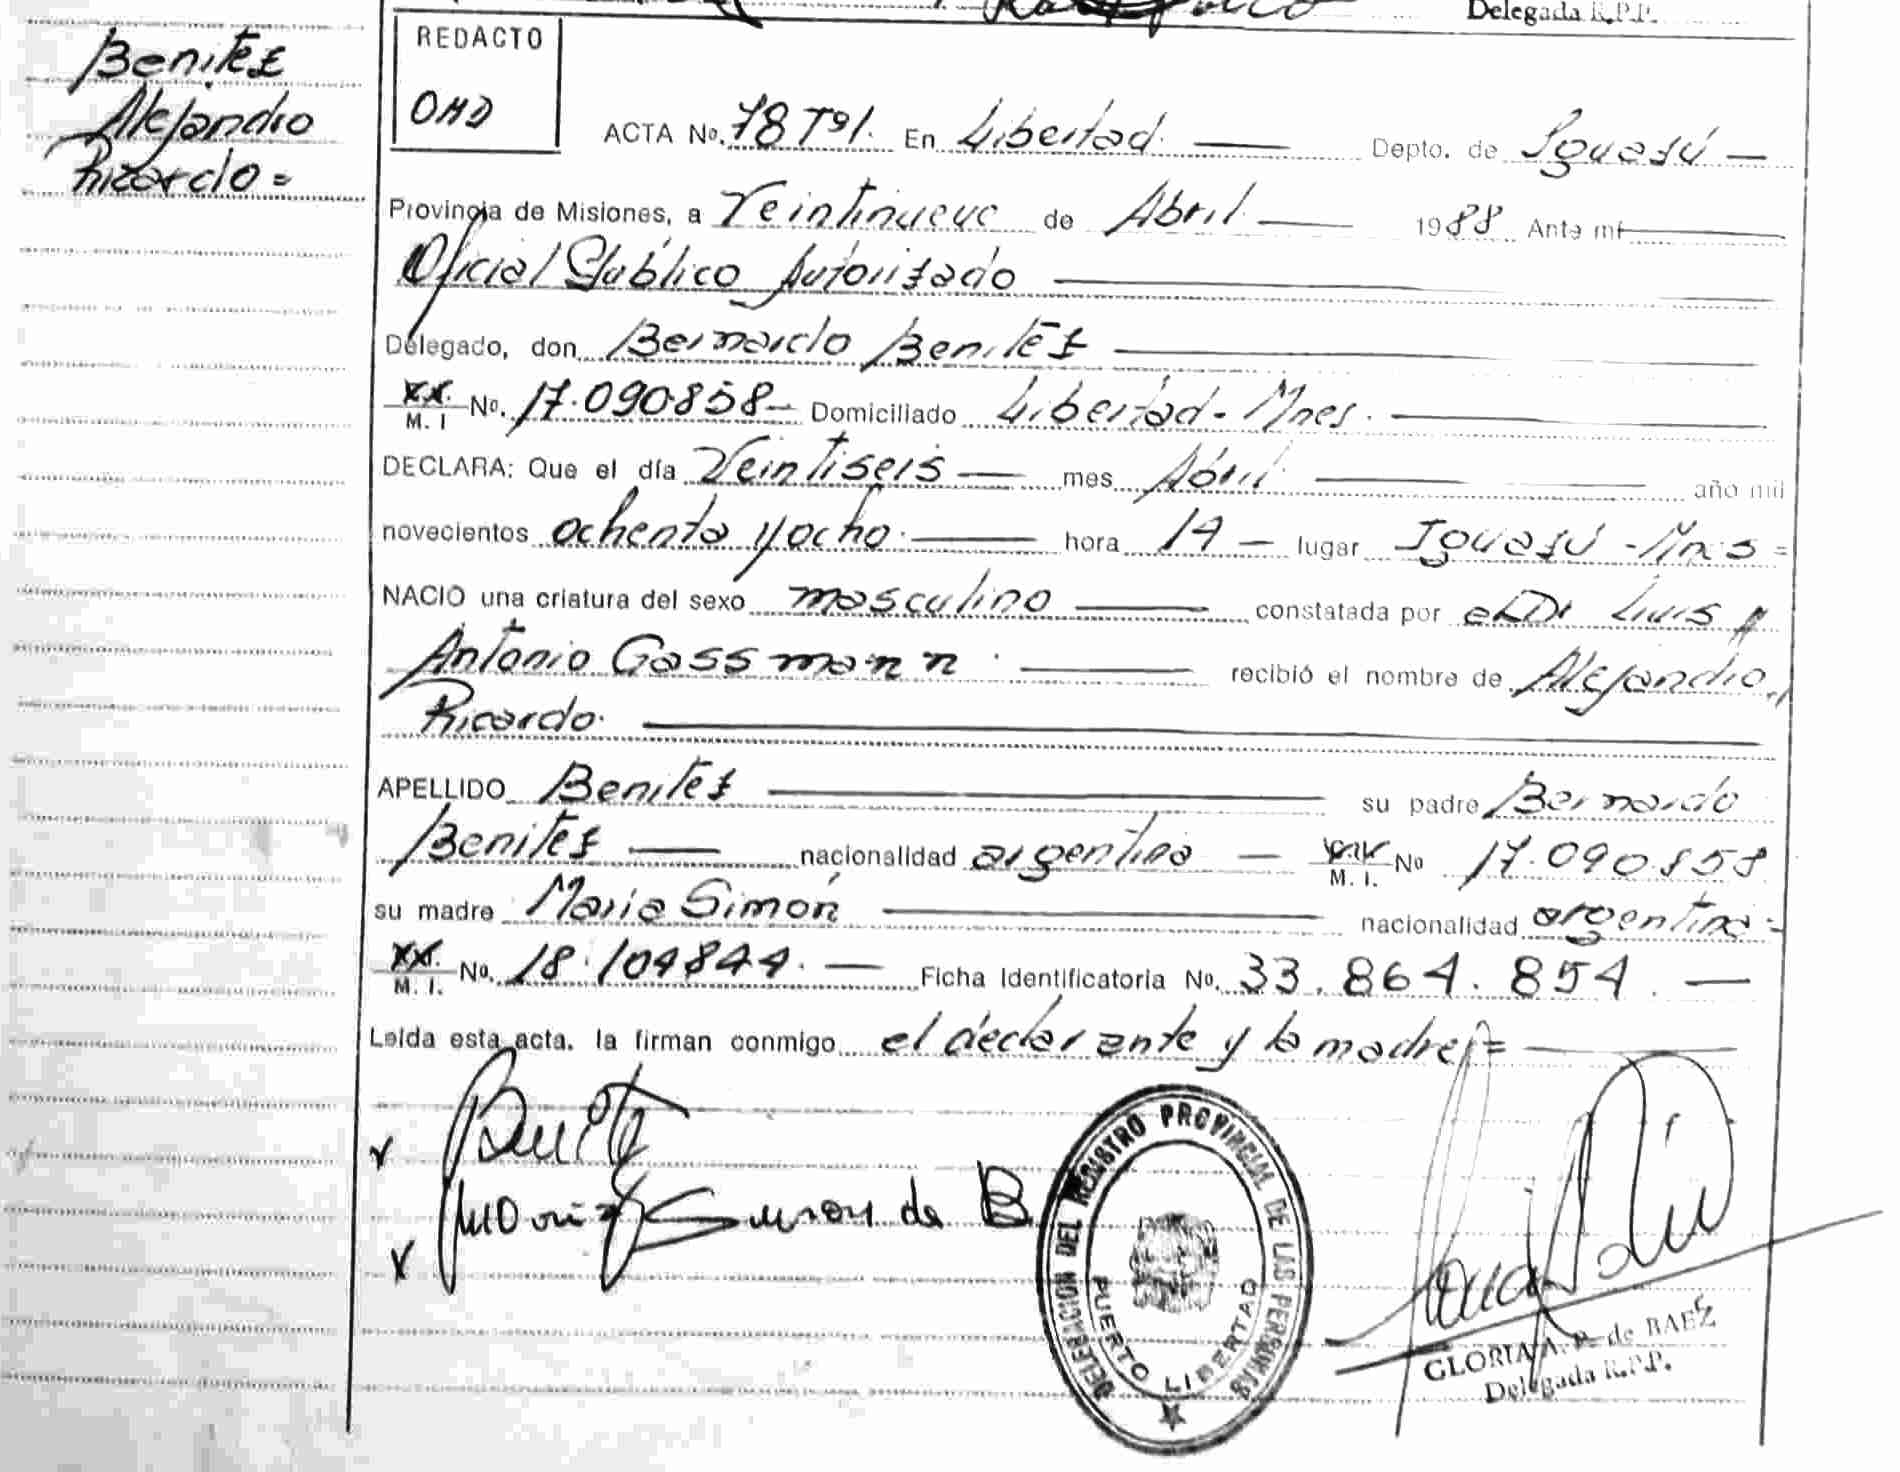 Delegada R.P.P.
Benites
Alejandro
Ricardo =
REDACTO
OMD
ACTA No. 78 Tº1. En Libertad. — Depto. de Iguasú —
Provincia de Misiones, a Veintinueve de Abril — 1988 Ante mí —
Oficial Público Autorizado —
Delegado, don Bernardo Benites —
M. I No. 17.090.858 — Domiciliado Libertad - Mnes. —
DECLARA: Que el día Veintiseis — mes Abril — año mil
novecientos ochenta y ocho. — hora 14 — lugar Iguasú - Mnes =
NACIO una criatura del sexo masculino — constatada por el Dr Luis
Antonio Gassmann. — recibió el nombre de Alejandro
Ricardo. —
APELLIDO Benites — su padre Bernardo
Benites — nacionalidad argentina — M. I. No 17.090.858
su madre Maria Simón — nacionalidad argentina =
M. I. No. 18.104844. — Ficha Identificatoria No. 33.864.854. —
Leída esta acta, la firman conmigo el declarante y la madre =
DELEGACION DEL REGISTRO PROVINCIAL DE LAS PERSONAS
PUERTO LIBERTAD
GLORIA A. P. de BAEZ
Delegada R.P.P.